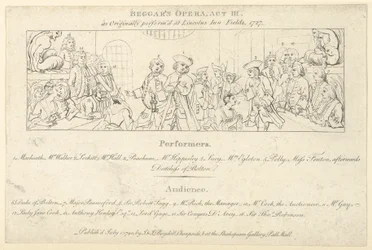 BEGGAR'S OPERA, ACT III.
as Originally perform'd at Lincolns Inn Fields, 1727.
Performers.
1. Macheath, Mr. Walker 2. Lockitt, Mr. Hall 3. Peachum, Mr. Hippisley 4. Lucy, Mrs. Egleton 5. Polly, Miss Fenton, afterwards
Dutchess of Bolton.
Audience.
6. Duke of Bolton, 7. Major Pauncford, 8. Sir Robert Fagg, 9. Mr. Rich, the Manager, 10. Mr. Cock, the Auctioneer, 11. Mr. Gay
12. Lady Jane Cook, 13. Anthony Henley Esqr. 14. Lord Gage, 15. Sir Conyers D'Arcy, 16. Sir Thos. Robinson.
Publish'd July 1, 1790, by J. & J. Boydell Cheapside, & at the Shakespeare Gallery, Pall Mall.